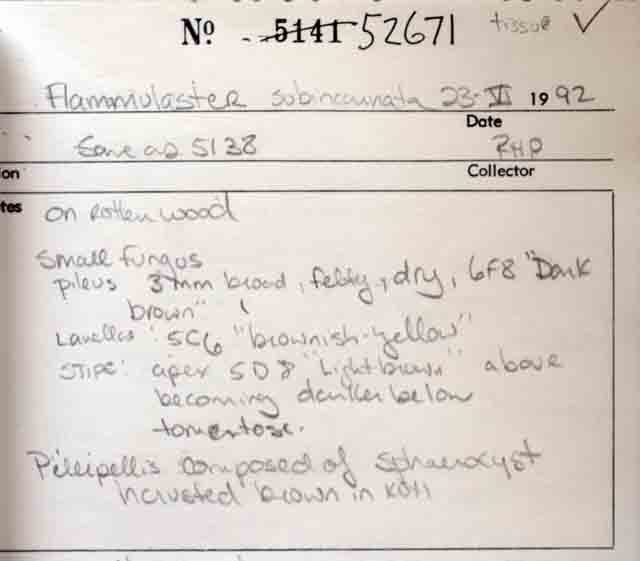 Nº 5141 52671 tissue ✓
Flammulaster subincarnata 23-VI 1992
Date
Same as 5138 RHP
on Collector
tes on rotten wood
Small fungus
pileus 3mm broad, felty, dry, 6F8 "Dark
brown"
Lamellae: 5C6 "brownish-yellow"
STIPE: apex 5D8 "Light brown" above
becoming darker below
tomentose.
Pileipellis composed of Sphaerocyst
incrusted brown in KOH